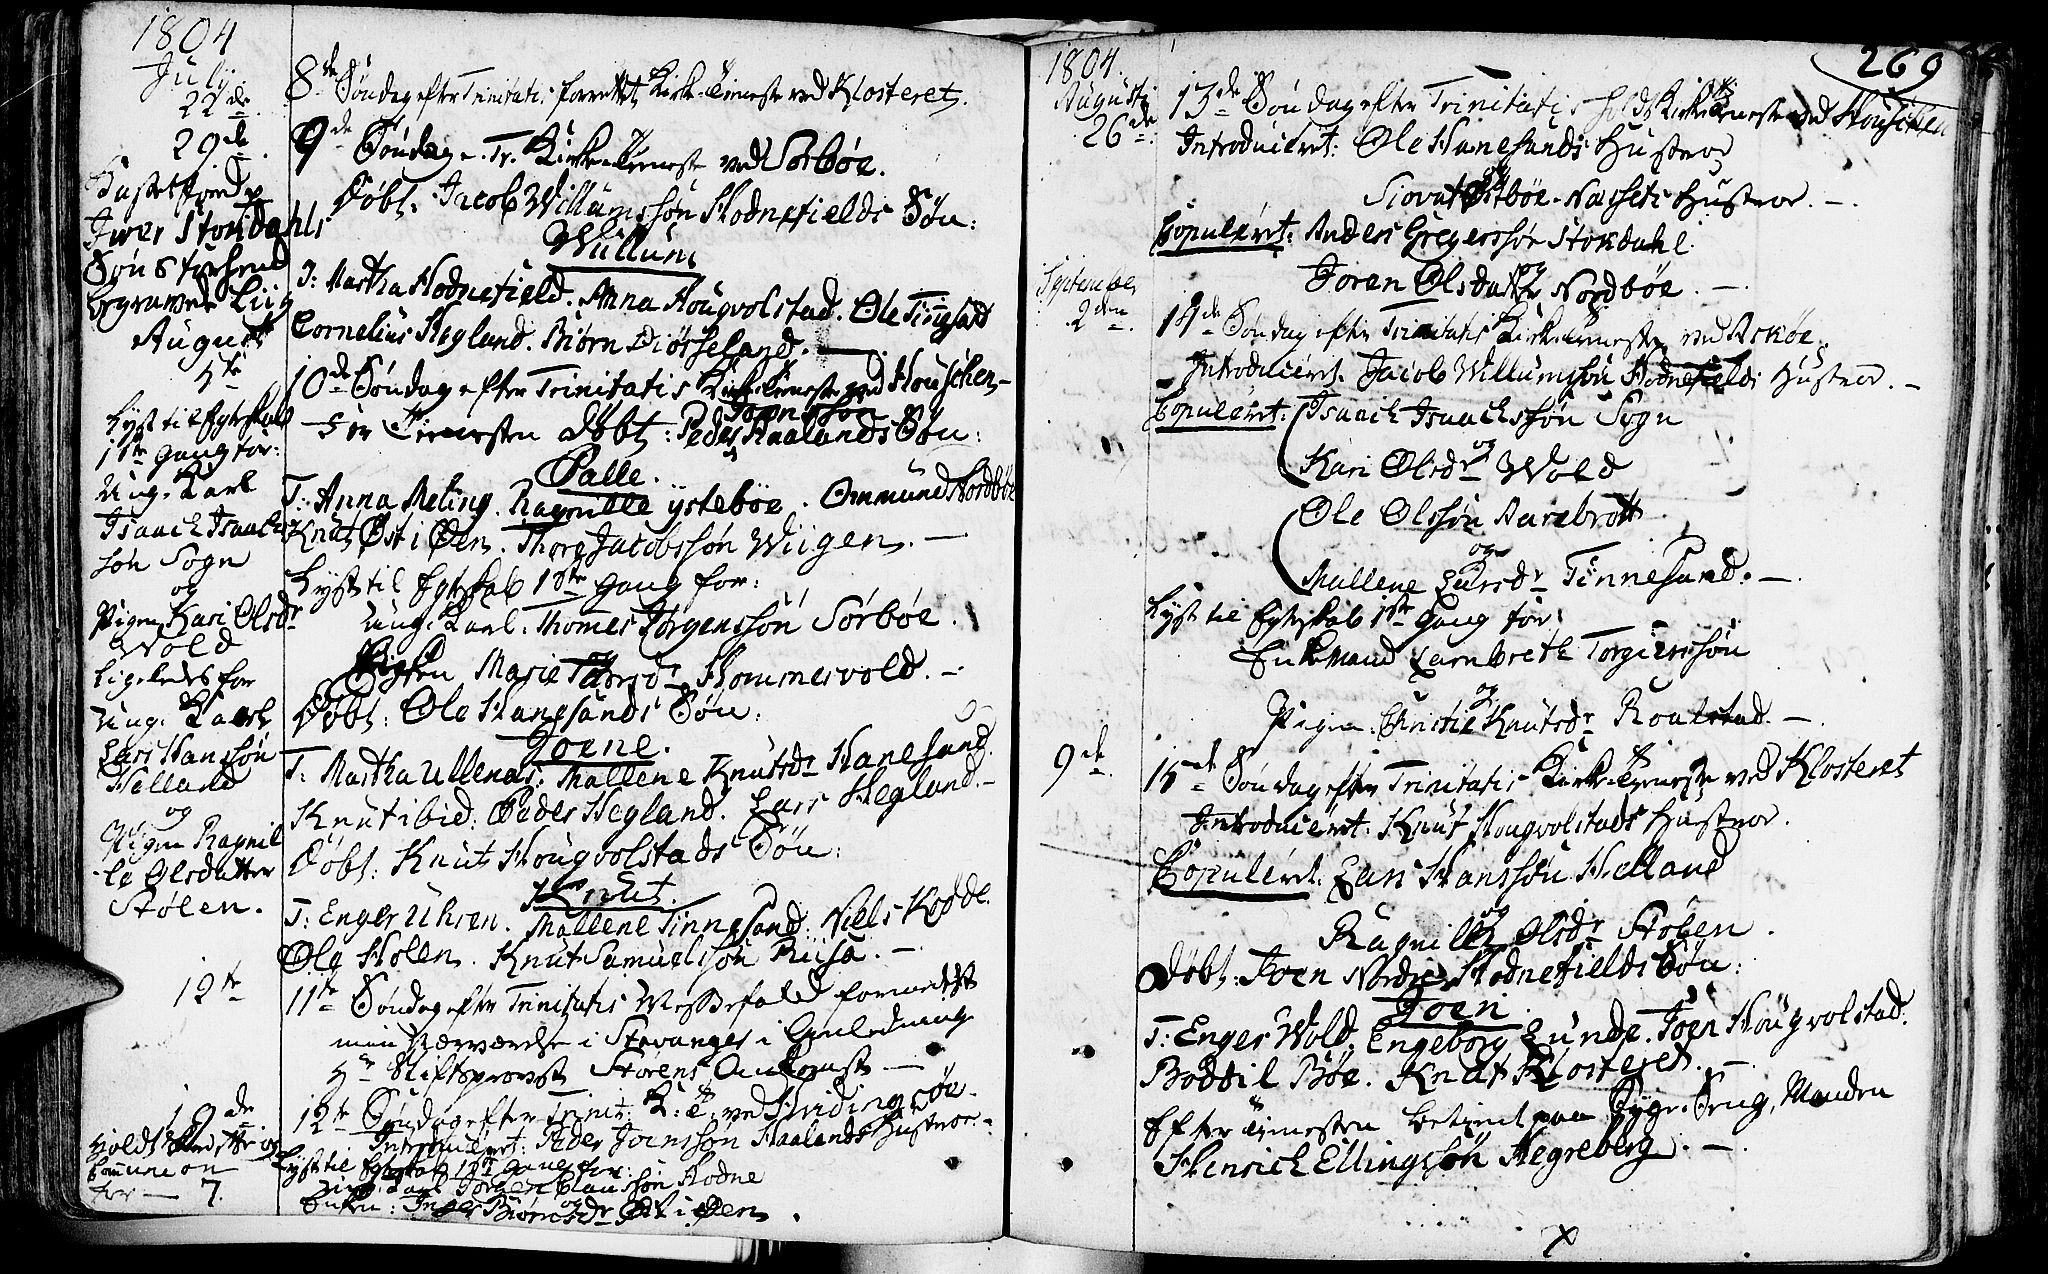 1804
July
22de
29de
Huset fjord
Iver Stokdahls
Søn
begravet Liig
August
5te
Lyst til Egteskab
1ste Gang for:
Ung. Karl
Isaach Isaachs
søn Sogn
og
Pigen Kari Olsdr
Wold
Ligeledes for
Ung. Karl
Lars Hanssøn
Helland
og
Pigen Ragnil
le Olsdatter
Stølen.
12te
19de
Holdt Skrifte og
Communion
for — 7.
8de Søndag efter Trinitatis forrettet Kirke-Tieneste ved Klosteret.
9de Søndag e. Tr. Kirke-Tieneste ved Sørbøe.
Døbt. Jacob Willumssøn Hodnefields Søn:
Willum
T: Martha Hodnefield. Anna Hougvolstad. Ole Tingsad
Cornelius Hegland. Biørn Diøsseland. —
10de Søndag efter Trinitatis Kirke-Tieneste ved Houschen,
før Tienesten Døbt: Peder Joensson Haalands Søn:
Palle.
T: Anna Meling. Ragnille ÿstebøe. Ommund Nordbøe
Knut Øst i Øen. Thore Jacobssøn Wiigen. —
Lyst til Egteskab 1ste Gang for:
Ung. Karl. Thomes Jørgenssøn Sørbøe.
og
Pigen Marie Thorsdr Hommersvold. —
Døbt: Ole Hanesunds Søn:
Joene.
T: Martha Ullenes. Mallene Knutsdr Hanesund.
Knut ibid: Peder Hegland. Lars Hegland. —
Døbt: Knut Hougvolstads Søn:
Knut.
T: Enger Uhren. Mallene Tinnesand. Niels Kodde.
Ole Holen. Knut Samuelssøn Rusa. —
11te Søndag efter Trinitatis Messefald formedelst
min Nærværelse i Stavanger i Anledning
Hr Stiftsprovst Størens Ankomst —
12te Søndag efter Trinit: K: T. ved Hvidingsøe.
Introduceret: Peder Joenssøn Haalands Hustroe. —
Lyst til Egteskab 1ste Gang for:
Ung. Karl Jørgen Claussøn Hodne
og
Enken: Inger Biørnsdr Øst i Øen.
269
1804.
Augusti
26de
September
2den
9de
13de Søndag efter Trinitatis holdt Kirke-Tieneste ved Houschen
Introduceret: Ole Hanesunds Hustroe
og
Siovat Østbøe-Næssets Hustroe. —
Copuleret: Anders Gregerssøn Stokdahl
og
Joren Olsdatter Nordbøe. —
14de Søndag efter Trinitatis Kirke-Tieneste ved Askøe.
Introduceret. Jacob Willumssøn Hodnefields Hustroe. —
Copuleret: Isaach Isaachssøn Sogn
og
Kari Olsdr Wold
Ole Olssøn Aarebrott
og
Mallene Larsdr Tinnesand. —
Lyst til Egteskab 1ste Gang for:
Enkemand Lambreth Torgierssøn
og
Pigen Christie Knutsdr Roalstad. —
15de Søndag efter Trinitatis Kirke-Tieneste ved Klosteret
Introduceret: Knut Hougvolstads Hustroe.
Copuleret: Lars Hanssøn Helland
og
Ragnille Olsdr Stølen.
Døbt: Joen Nordre Hodnefields Søn:
Joen
T: Enger Wold. Engeborg Lunde. Joen Hougvolstad.
Boddil Bøe. Knut Klosteret. —
Efter Tienesten betient paa Syge-Seng, Manden
Henrich Ellingssøn Hegreberg. —